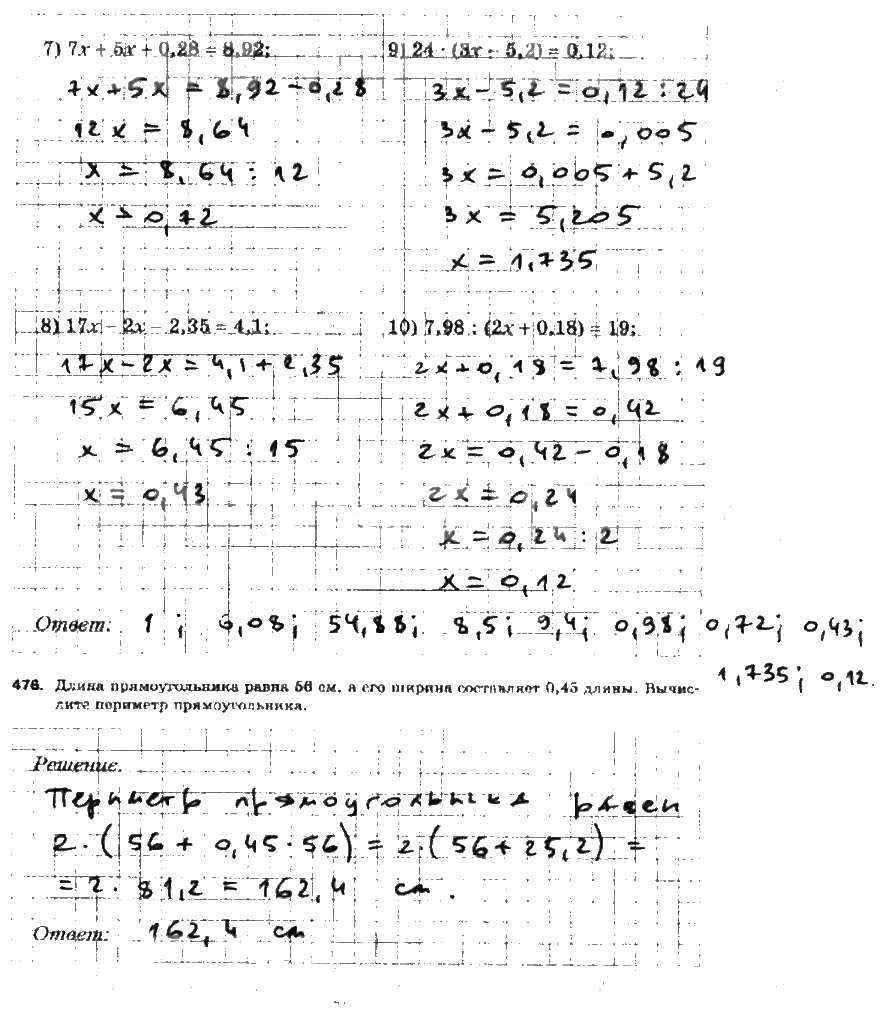 7) 7x + 5x + 0,28 = 8,92;
7x + 5x = 8,92 - 0,28
12x = 8,64
x = 8,64 : 12
x = 0,72
9) 24 · (3x - 5,2) = 0,12;
3x - 5,2 = 0,12 : 24
3x - 5,2 = 0,005
3x = 0,005 + 5,2
3x = 5,205
x = 1,735
8) 17x - 2x - 2,35 = 4,1;
17x - 2x = 4,1 + 2,35
15x = 6,45
x = 6,45 : 15
x = 0,43
10) 7,98 : (2x + 0,18) = 19;
2x + 0,18 = 7,98 : 19
2x + 0,18 = 0,42
2x = 0,42 - 0,18
2x = 0,24
x = 0,24 : 2
x = 0,12
Ответ: 1; 6,08; 54,88; 8,5; 9,4; 0,98; 0,72; 0,43;
1,735; 0,12.
476. Длина прямоугольника равна 56 см, а его ширина составляет 0,45 длины. Вычис-
лите периметр прямоугольника.
Решение.
Периметр прямоугольника равен
2 · (56 + 0,45 · 56) = 2 · (56 + 25,2) =
= 2 · 81,2 = 162,4 см.
Ответ: 162,4 см